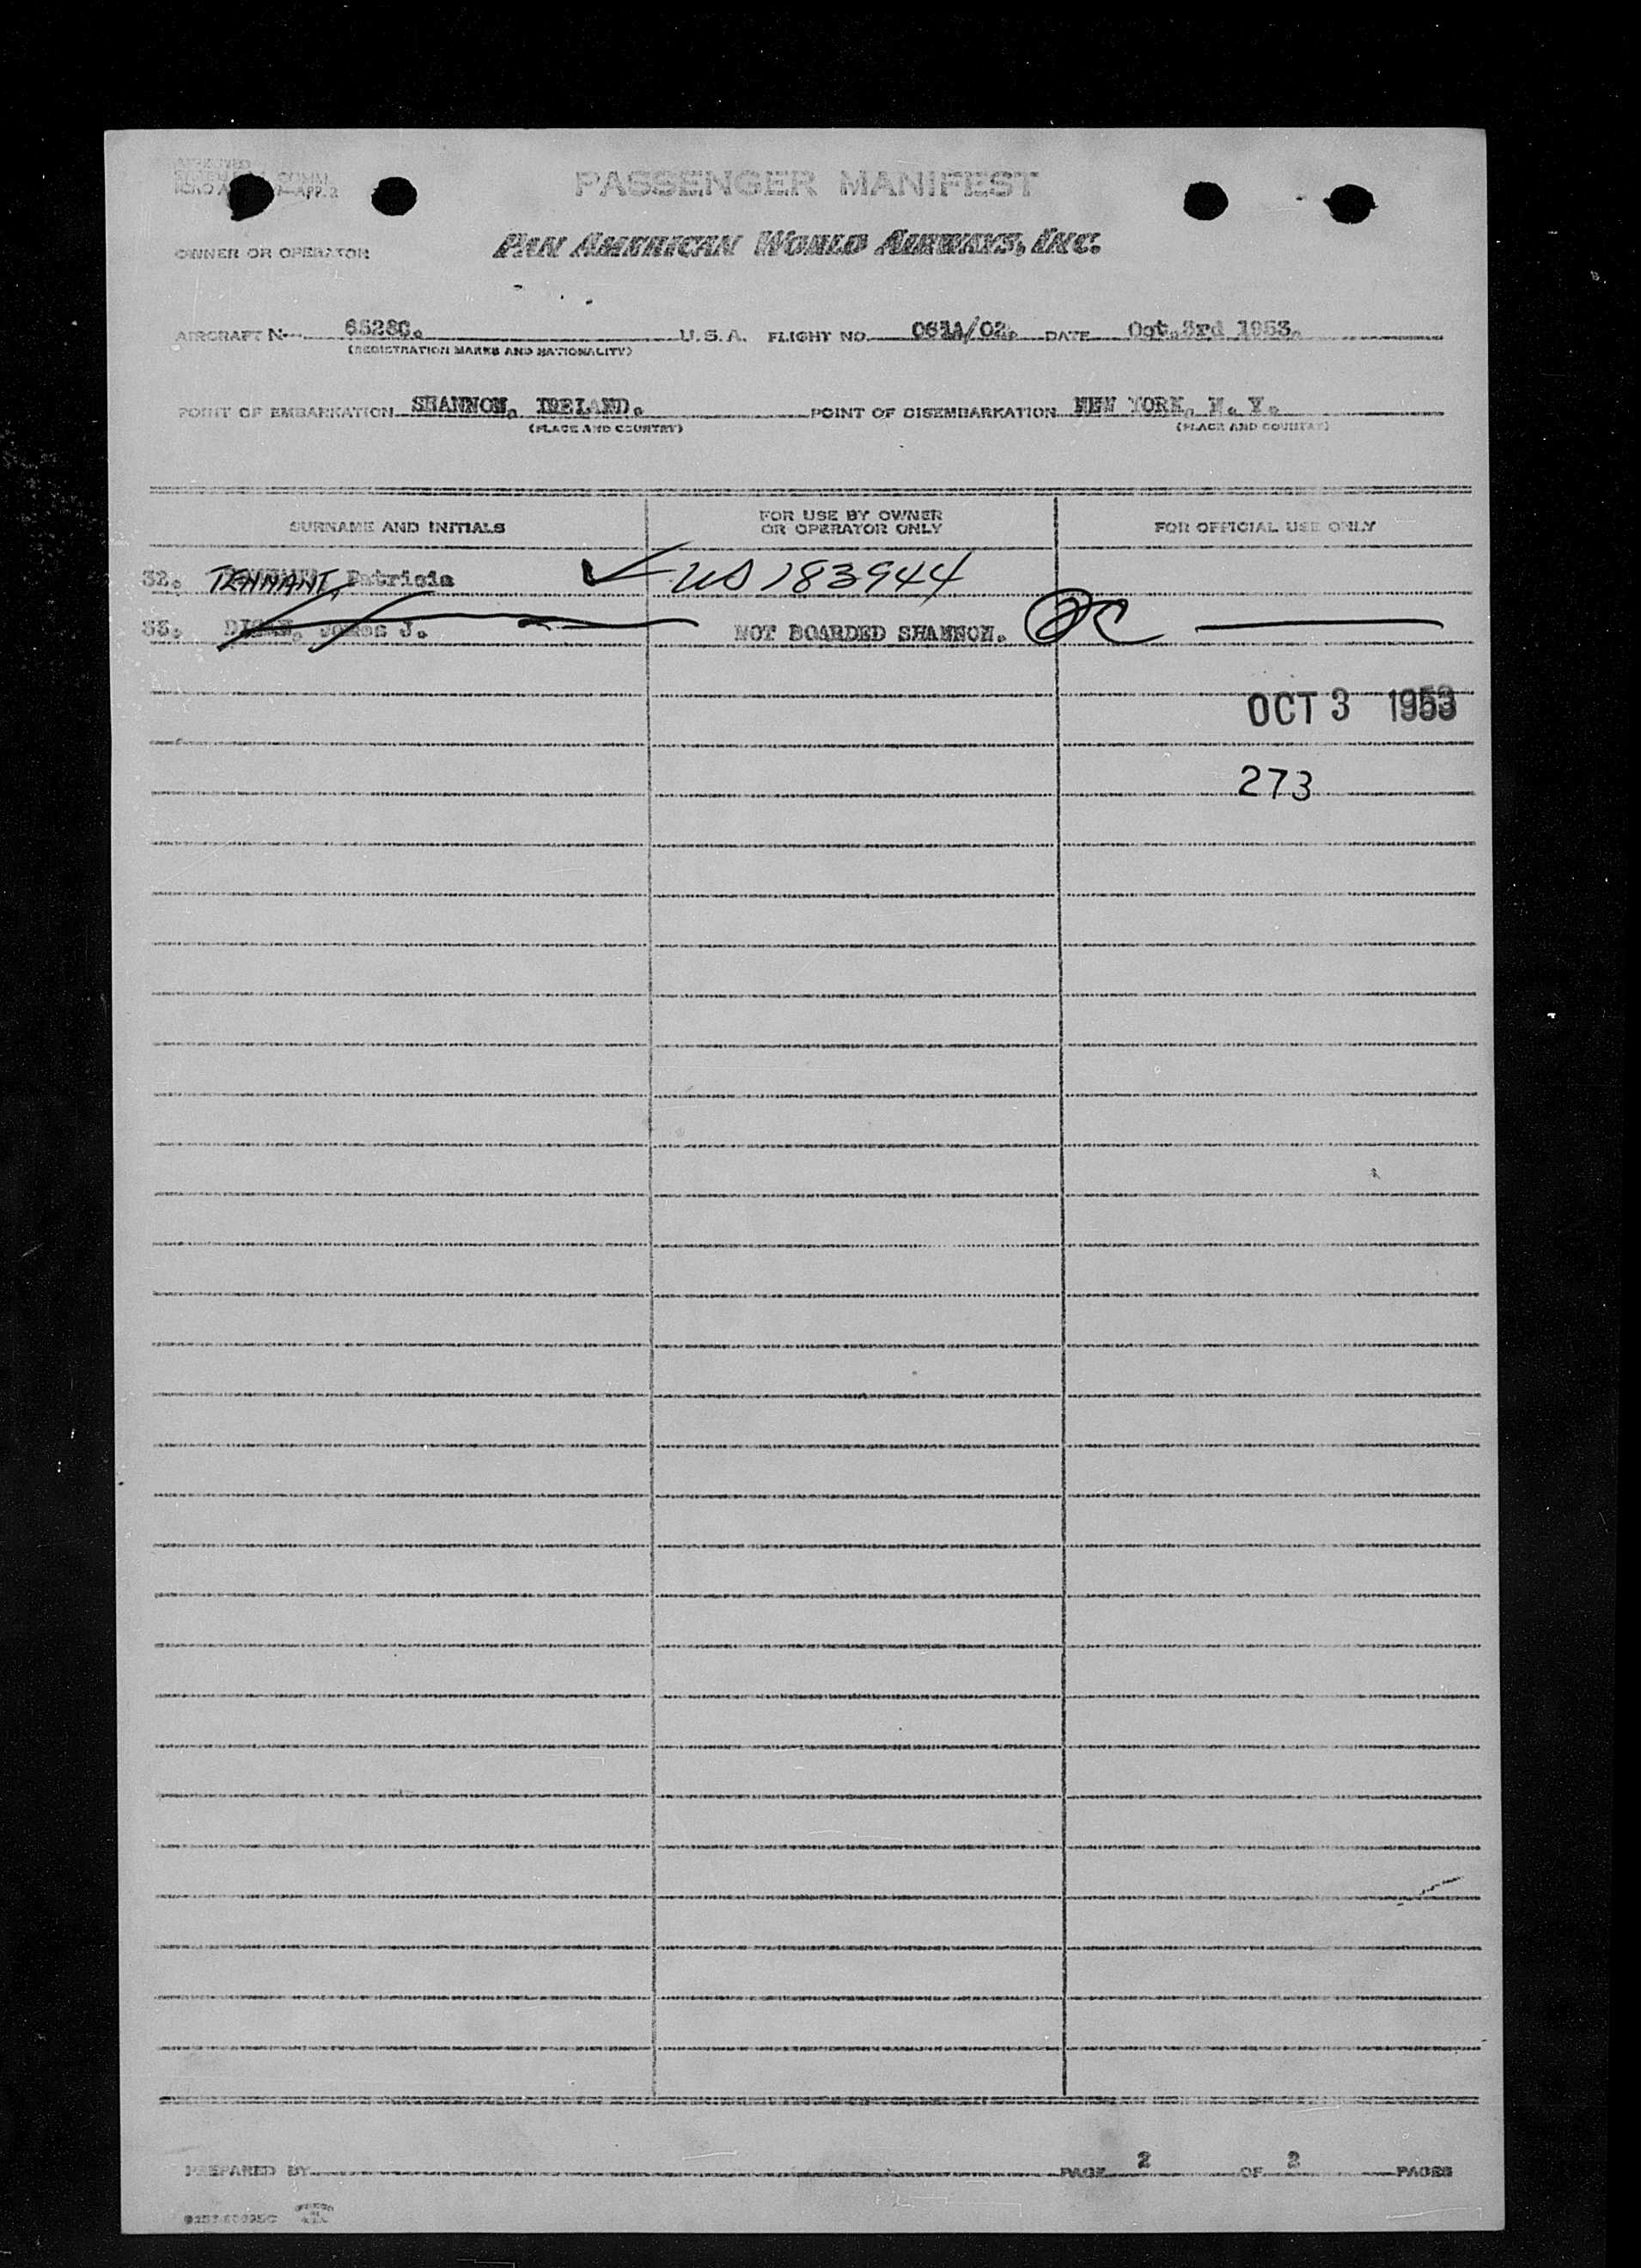 APPROVED
PASSENGER MANIFEST
OWNER OR OPERATOR PAN AMERICAN WORLD AIRWAYS, INC.
AIRCRAFT N 6528C. U.S.A. FLIGHT NO. 061A/02. DATE Oct.3rd 1953.
(REGISTRATION MARKS AND NATIONALITY)
POINT OF EMBARKATION SHANNON, IRELAND. POINT OF DISEMBARKATION NEW YORK, N. Y.
(PLACE AND COUNTRY) (PLACE AND COUNTRY)
SURNAME AND INITIALS FOR USE BY OWNER OR OPERATOR ONLY FOR OFFICIAL USE ONLY
32. TENNANT, Patricia ✓ US 183944
33. James J. NOT BOARDED SHANNON.
OCT 3 1953
273
PREPARED BY PAGE 2 OF 2 PAGES